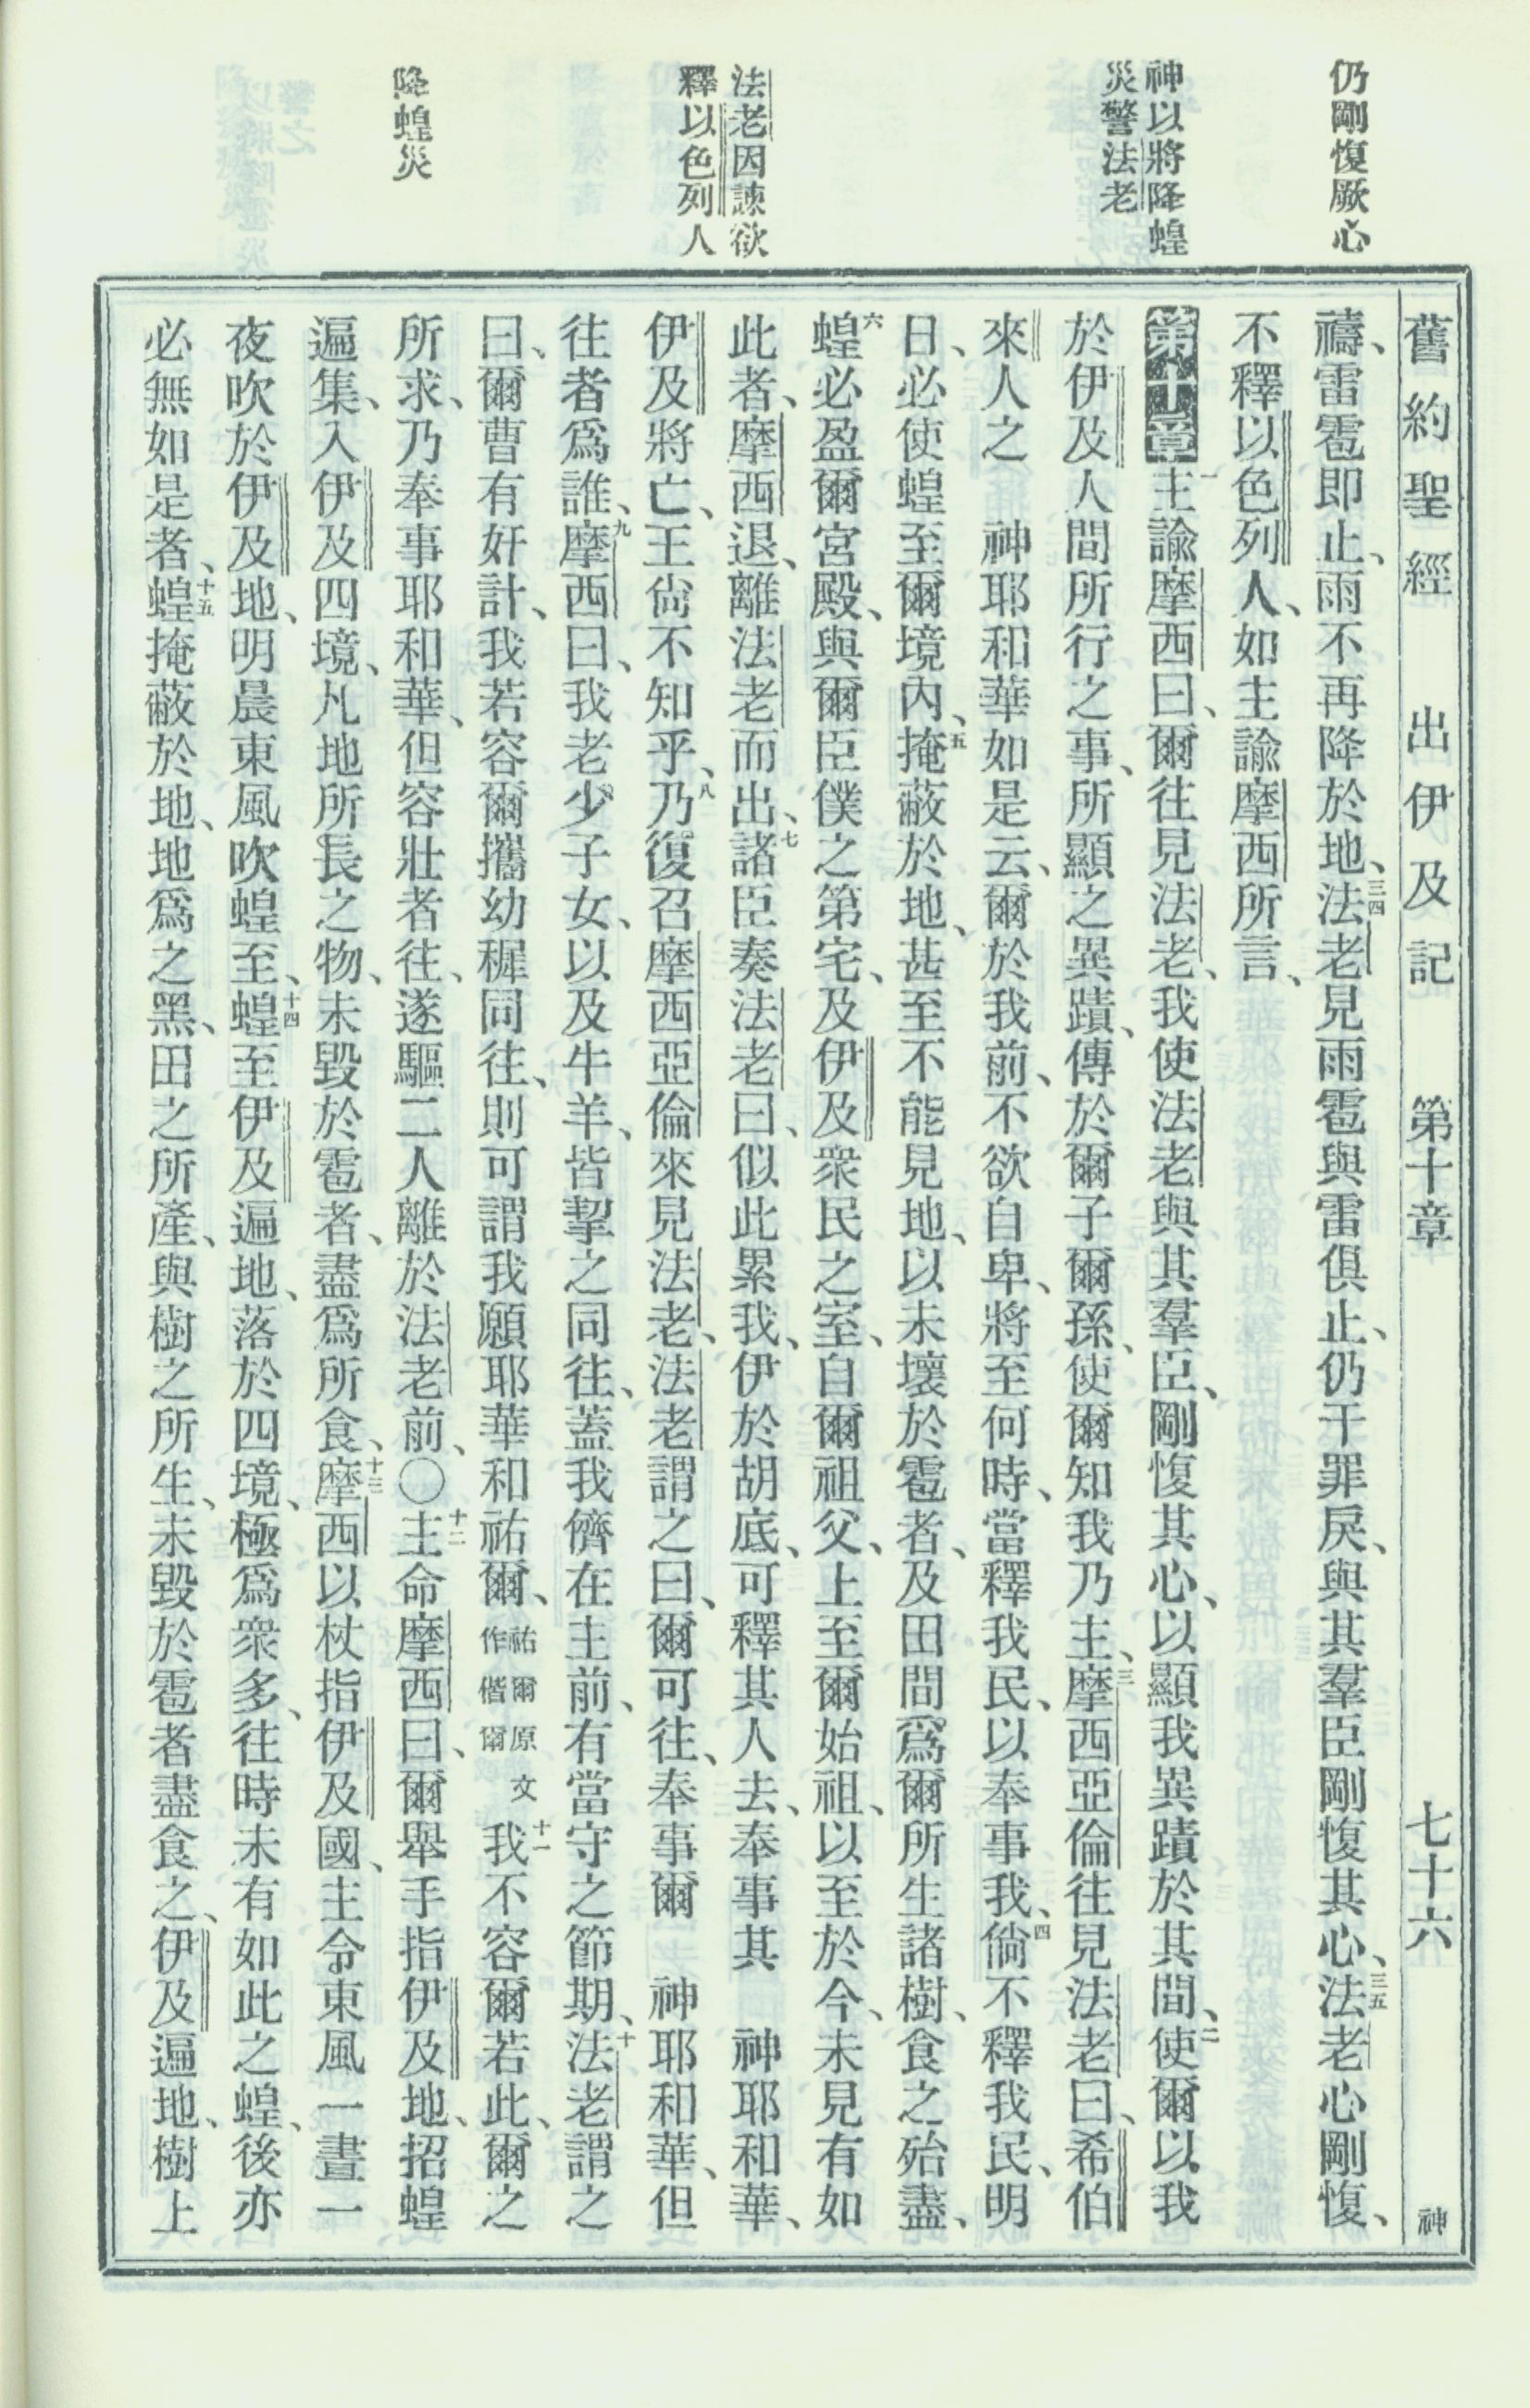 仍剛愎厥心
神以將降蝗
災警法老
法老因諫欲
釋以色列人
降蝗災
舊約聖經 出伊及記 第十章 七十六 神
禱、雷雹即止、雨不再降於地、三四法老見雨雹與雷俱止、仍干罪戾、與其羣臣剛愎其心、三五法老心剛愎、
不釋以色列人、如主諭摩西所言、
第十章 一主諭摩西曰、爾往見法老、我使法老與其羣臣、剛愎其心、以顯我異蹟於其間、二使爾以我
於伊及人間所行之事、所顯之異蹟、傳於爾子爾孫、使爾知我乃主、三摩西亞倫往見法老曰、希伯
來人之 神耶和華如是云、爾於我前、不欲自卑、將至何時、當釋我民、以奉事我、四倘不釋我民、明
日、必使蝗至爾境內、五掩蔽於地、甚至不能見地、以未壞於雹者、及田間爲爾所生諸樹、食之殆盡、
六蝗必盈爾宮殿、與爾臣僕之第宅、及伊及衆民之室、自爾祖父、上至爾始祖、以至於今、未見有如
此者、摩西退、離法老而出、七諸臣奏法老曰、似此累我、伊於胡底、可釋其人去、奉事其 神耶和華、
伊及將亡、王尙不知乎、八乃復召摩西亞倫來見法老、法老謂之曰、爾可往、奉事爾 神耶和華、但
往者爲誰、九摩西曰、我老少子女、以及牛羊、皆挈之同往、蓋我儕在主前、有當守之節期、十法老謂之
曰、爾曹有奸計、我若容爾攜幼穉同往、則可謂我願耶華和祐爾、祐爾原文作偕爾 十一我不容爾若此、爾之
所求、乃奉事耶和華、但容壯者往、遂驅二人離於法老前、○十二主命摩西曰、爾舉手指伊及地、招蝗
遍集、入伊及四境、凡地所長之物、未毀於雹者、盡爲所食、十三摩西以杖指伊及國、主令東風一晝一
夜吹於伊及地、明晨東風吹蝗至、十四蝗至伊及遍地、落於四境、極爲衆多、往時未有如此之蝗、後亦
必無如是者、十五蝗掩蔽於地、地爲之黑、田之所產、與樹之所生、未毀於雹者盡食之、伊及遍地、樹上